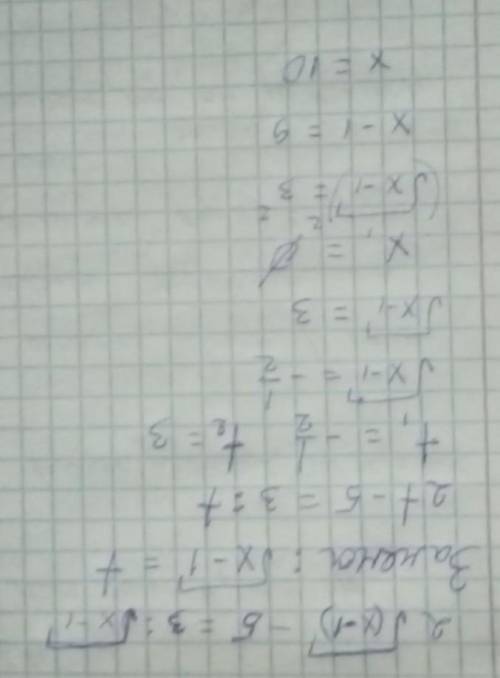 2√(x-1) - 5 = 3 : √x-1
Замена: √x-1 = t
2t - 5 = 3 : t
t₁ = -1/2 t₂ = 3
√x-1 = -1/2
√x-1 = 3
x₁ = ∅
(√x-1)² = 3² =
x - 1 = 9
x = 10